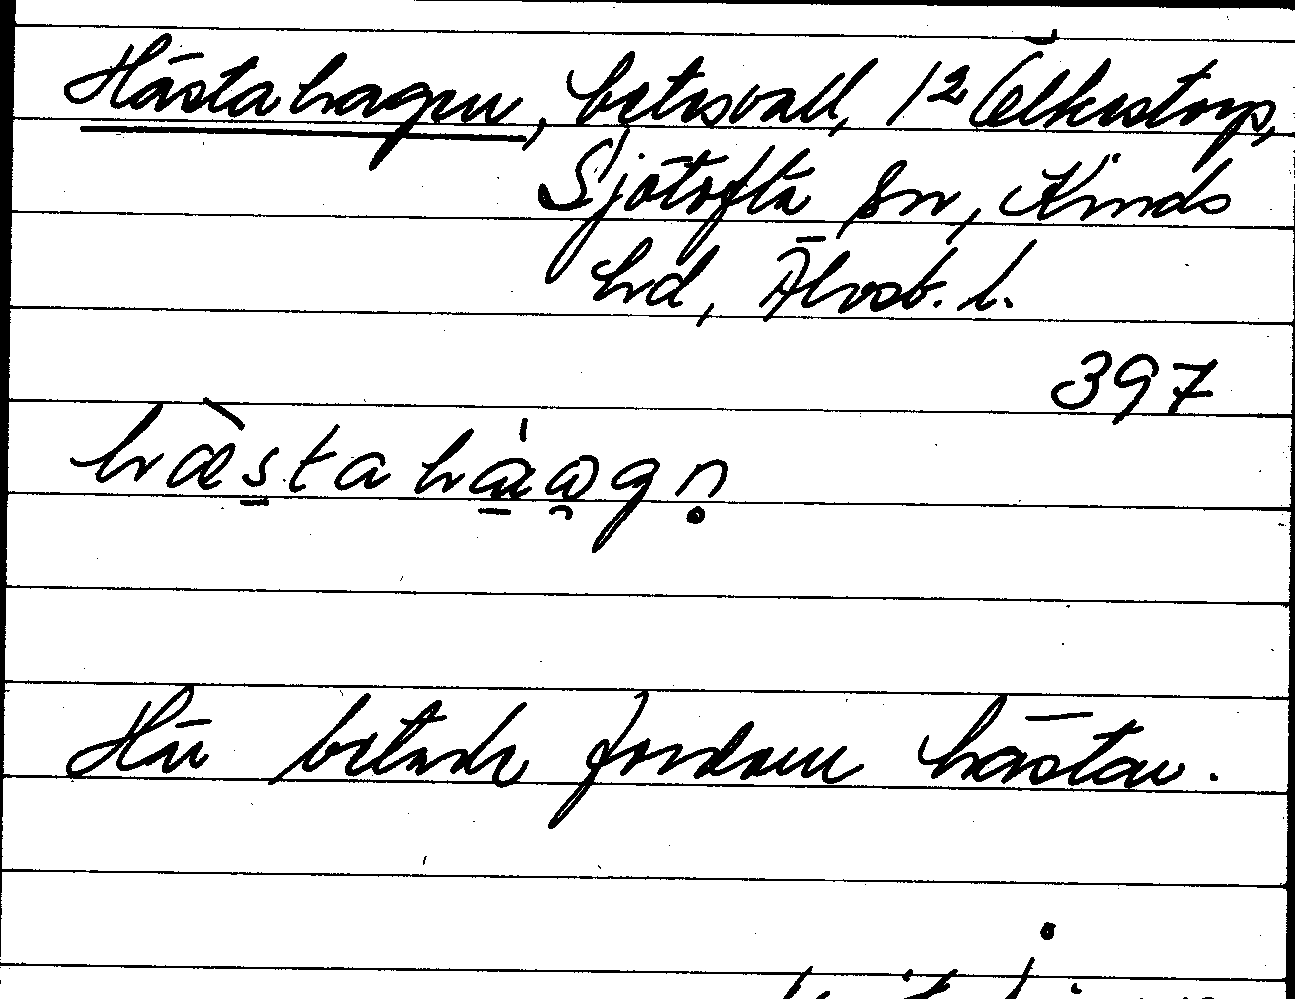 Hästahagen, betesvall, 12 Ölkestorp,
Sjötofta sn, Kinds
hd, Älvsb. l.
397
hæ̀stahàagn̥
Här betade fordom hästar.